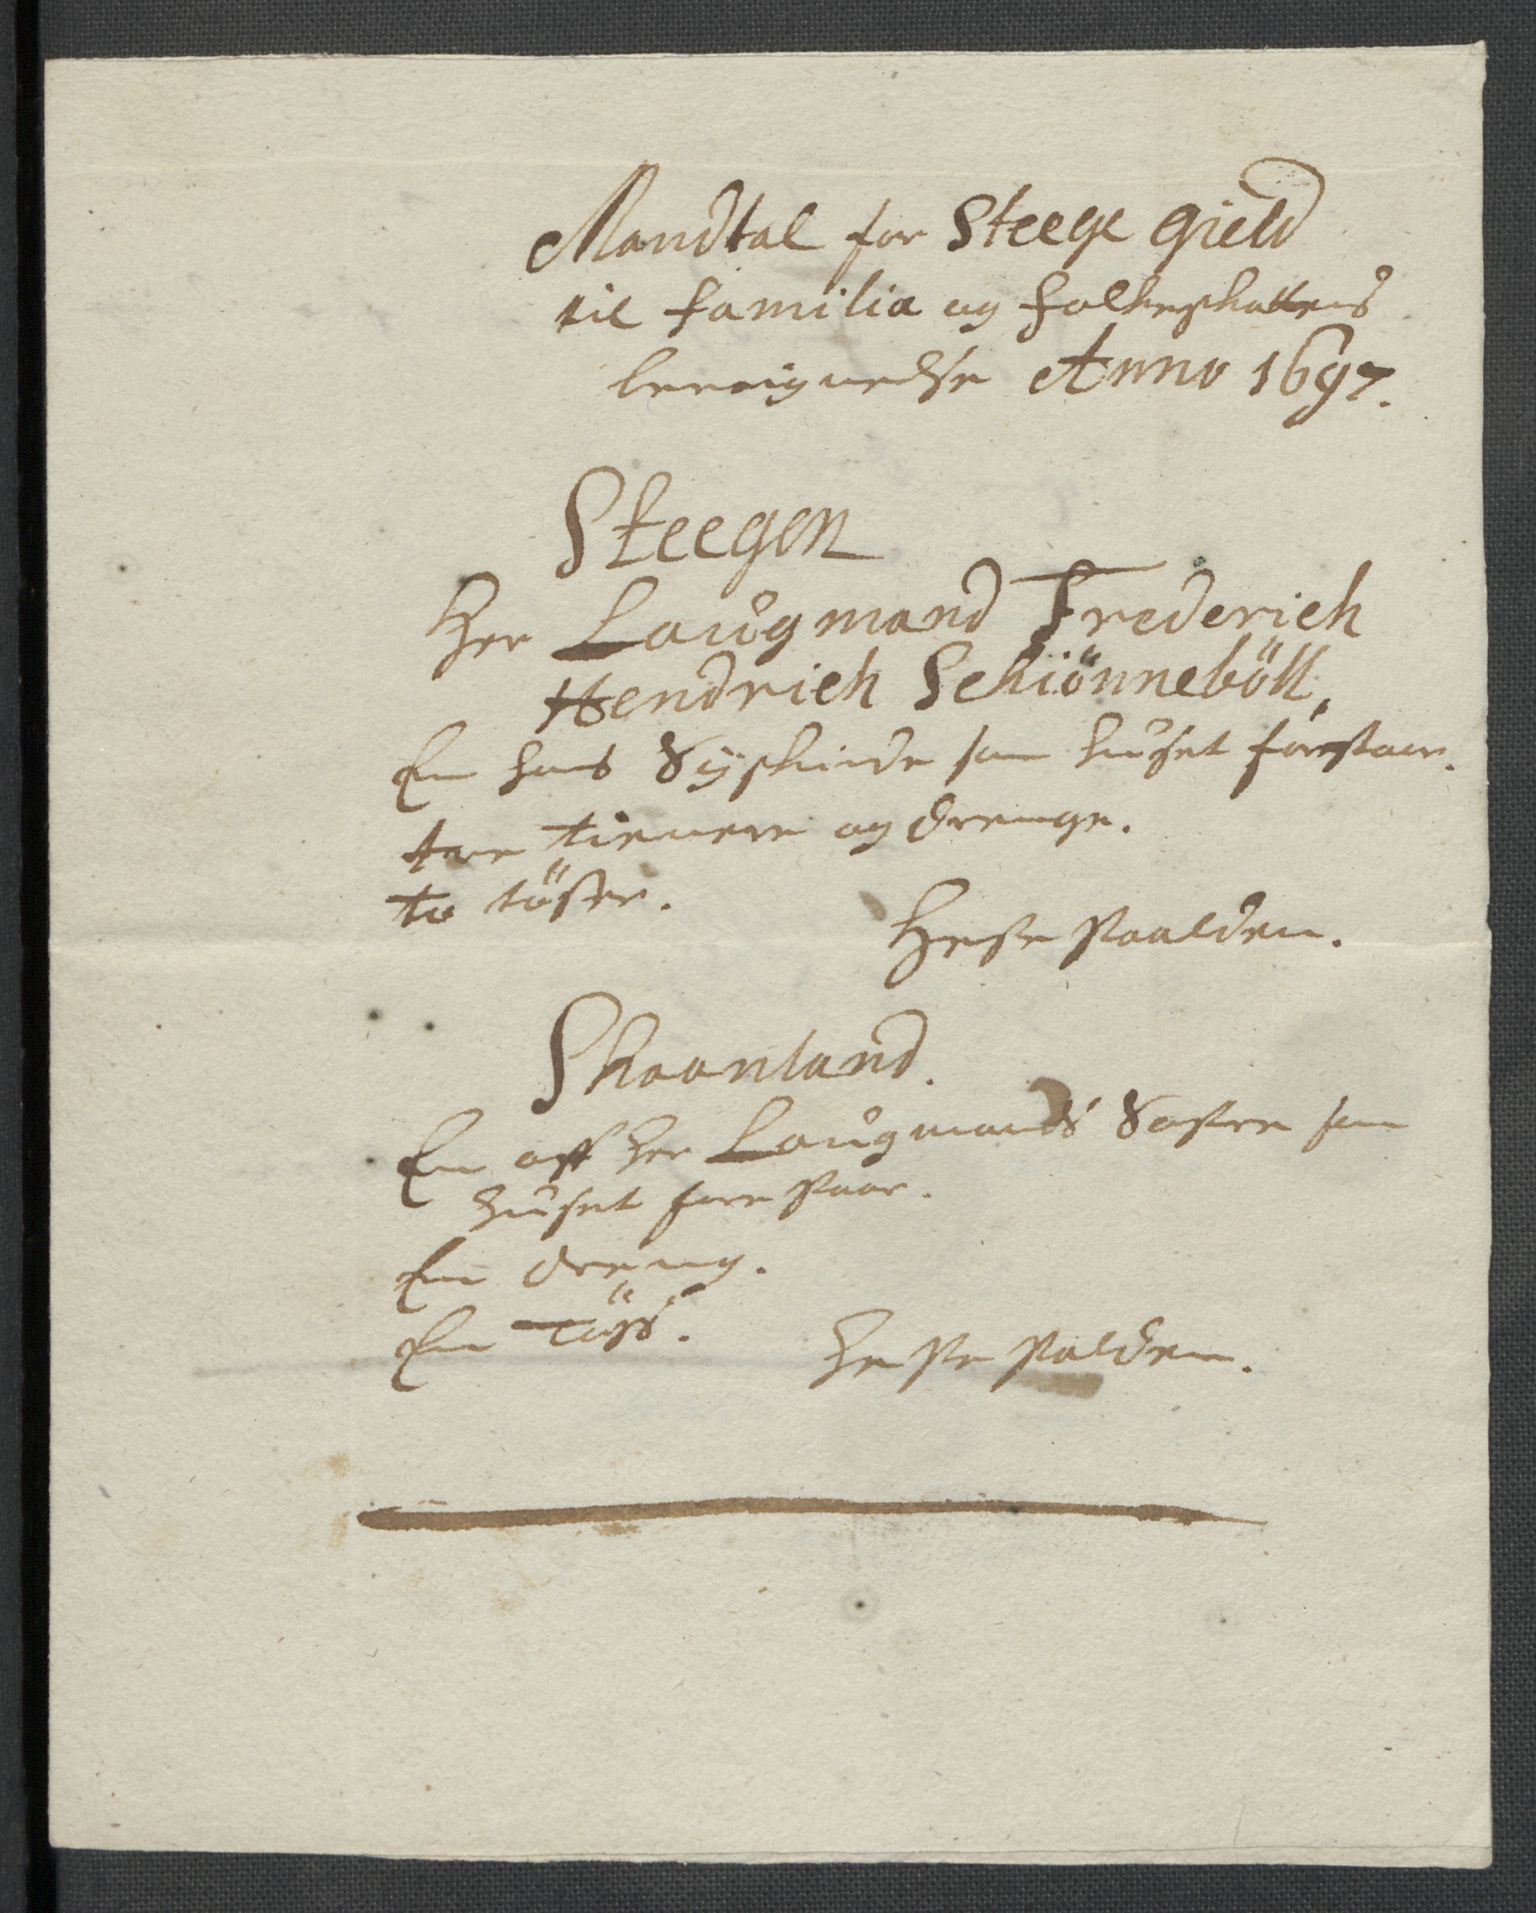 Mandtal for Steege Gield
til familia og folkeskattens
bereignelse Anno 1697.
Steegen
Her Laugmand Frederich
Hendrich Schiönneböll,
En hans Syskinde som huset forestaar.
tre tienere og drenge.
to töser.
Hesteskolden.
Skaanland.
En aff her Laugmands Søstre som
huset forestaar.
En dreng.
En Töss.
Hestestalden.